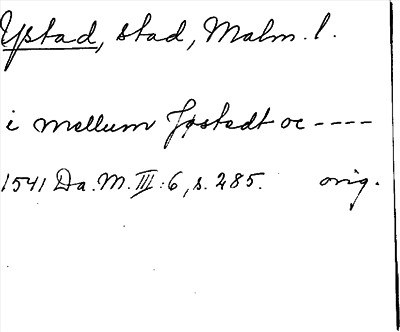 Ystad, stad, Malm. l.
i mellum Jøstedt oc ----
1541 Da. M. III: 6, s. 285. orig.